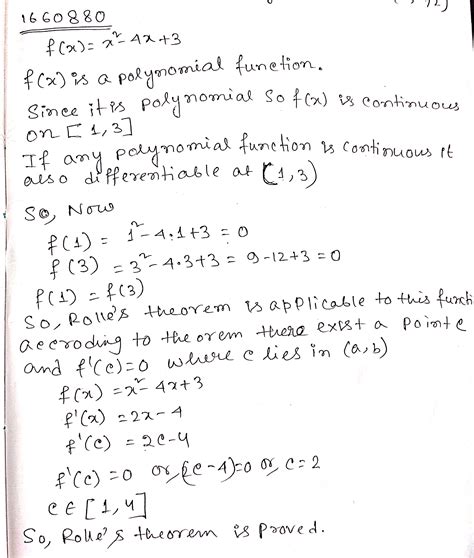 1660880
f(x) = x²-4x+3
f(x) is a polynomial function.
Since it is polynomial so f(x) is continuous
on [1,3]
If any polynomial function is continuous it
also differentiable at (1,3)
So, Now
f(1) = 1²-4.1+3 = 0
f(3) = 3²-4.3+3 = 9-12+3 = 0
f(1) = f(3)
So, Rolle's theorem is applicable to this functi
accroding to theorem there exist a point c
and f'(c)=0 where c lies in (a,b)
f(x) = x²-4x+3
f'(x) = 2x-4
f'(c) = 2c-4
f'(c) = 0 or, (2c-4)=0 or, c=2
c ∈ [1,4]
So, Rolle's theorem is proved.